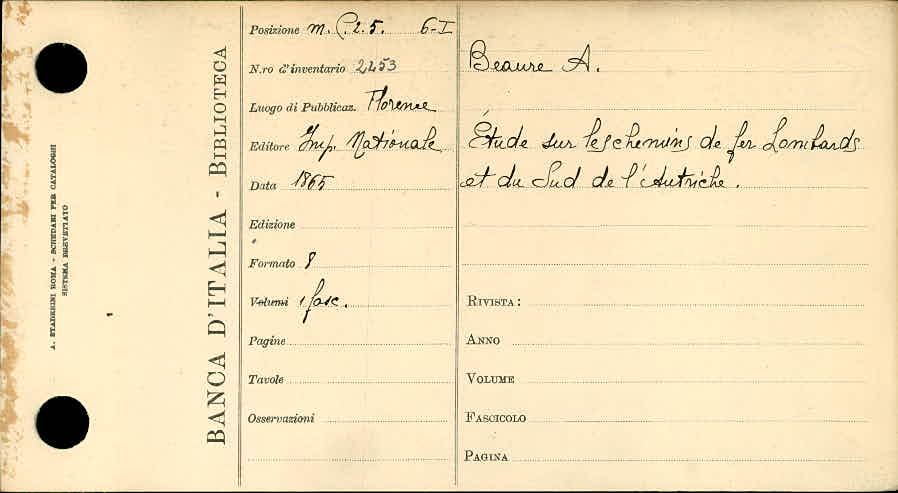 A. STADERINI ROMA - SCHEDARI PER CATALOGHI
SISTEMA BREVETTATO
BANCA D'ITALIA - BIBLIOTECA
Posizione m. C. 2. 5. 6-I
N.ro d'inventario 2453
Luogo di Pubblicaz. Florence
Editore Imp. Nationale
Data 1865
Edizione
Formato 8
Volumi 1 fasc.
Pagine
Tavole
Osservazioni
Beaure A.
Étude sur les chemins de fer Lombards
et du Sud de l'Autriche.
RIVISTA:
ANNO
VOLUME
FASCICOLO
PAGINA